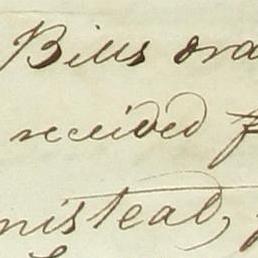 Bills ord
received f
mistead,